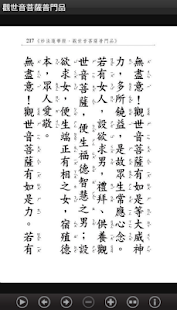 觀世音菩薩普門品
《妙法蓮華經‧觀世音菩薩普門品》
無盡意！觀世音菩薩有如是等大威神
力，多所饒益，是故眾生常應心念。
若有女人，設欲求男，禮拜、供養觀
世音菩薩，便生福德智慧之男；設
欲求女，便生端正有相之女，宿殖德
本，眾人愛敬。
無盡意！觀世音菩薩有如是力。若有